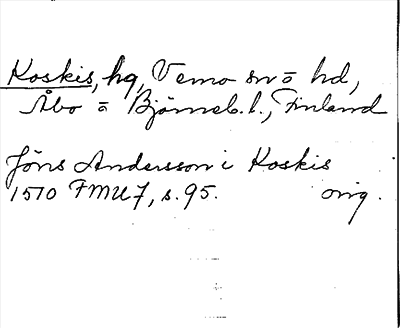 Koskis, hg, Vemo sn o hd,
Åbo o Björneb. l., Finland
Jöns Andersson i Koskis
1510 FMU 7, s. 95. orig.